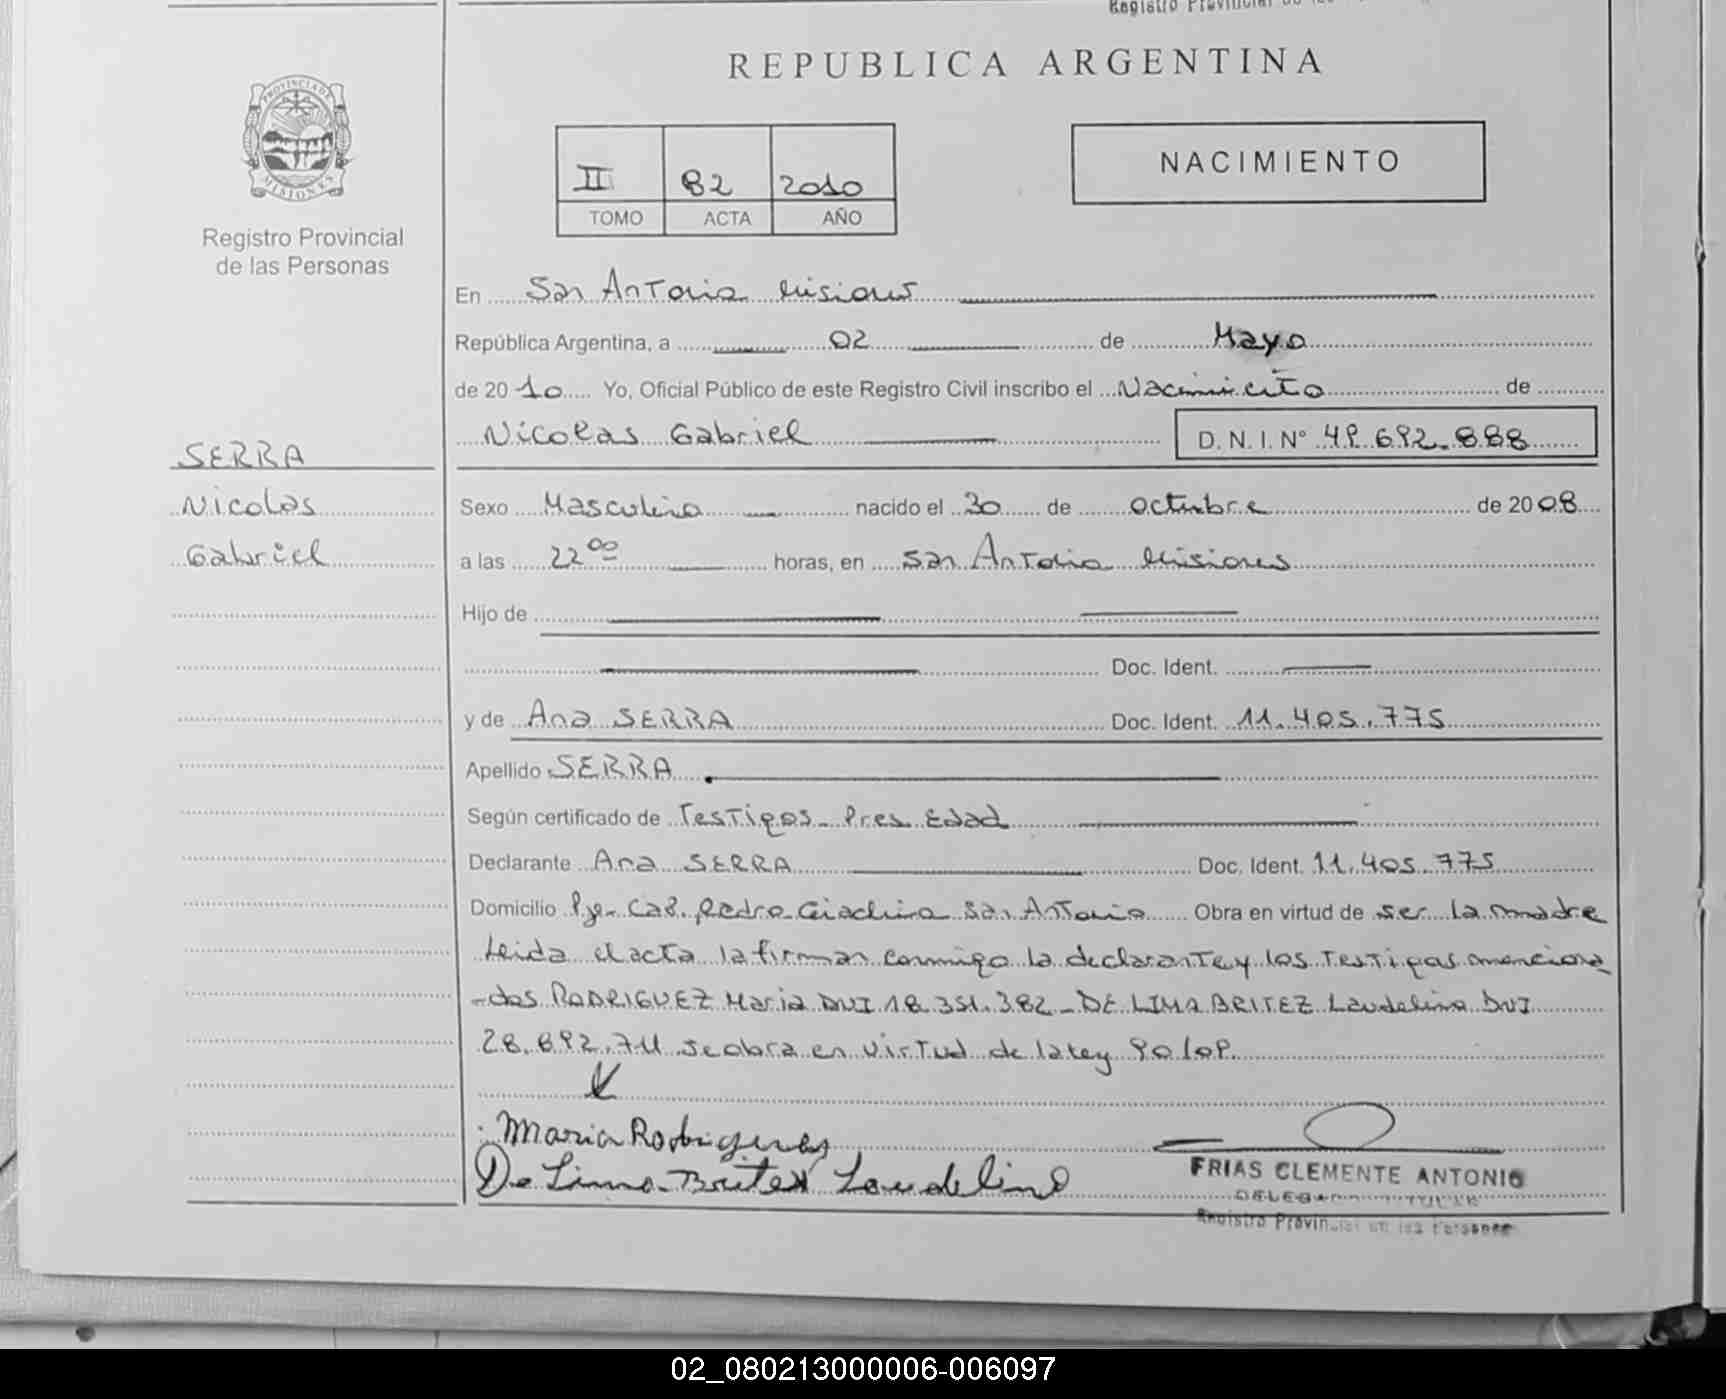 Registro Provincial de las
REPUBLICA ARGENTINA
PROVINCIA DE
MISIONES
Registro Provincial
de las Personas
II 82 2010
TOMO ACTA AÑO
NACIMIENTO
En San Antonio Misiones
República Argentina, a 02 de Mayo
de 2010 Yo, Oficial Público de este Registro Civil inscribo el Nacimiento de
Nicolas Gabriel D.N.I. N° 49.692.888
SERRA
Nicolas
Gabriel
Sexo Masculino nacido el 30 de octubre de 2008
a las 22 00 horas, en San Antonio Misiones
Hijo de
Doc. Ident.
y de Ana SERRA Doc. Ident. 11.405.775
Apellido SERRA
Según certificado de Testigos - Pres. Edad
Declarante Ana SERRA Doc. Ident. 11.405.775
Domicilio Pje. Cap. Pedro Giachino San Antonio Obra en virtud de ser la madre
Leida el acta la firman conmigo la declarante y los Testigos menciona
-dos RODRIGUEZ Maria DNI 18.351.382 - DE LIMA BRITEZ Laudelino DNI
28.692.711 se obra en virtud de la Ley 90/09
Maria Rodriguez
De Lima Britez Laudelino
FRIAS CLEMENTE ANTONIO
DELEGADO TITULAR
Registro Provincial de las Personas
02_080213000006-006097